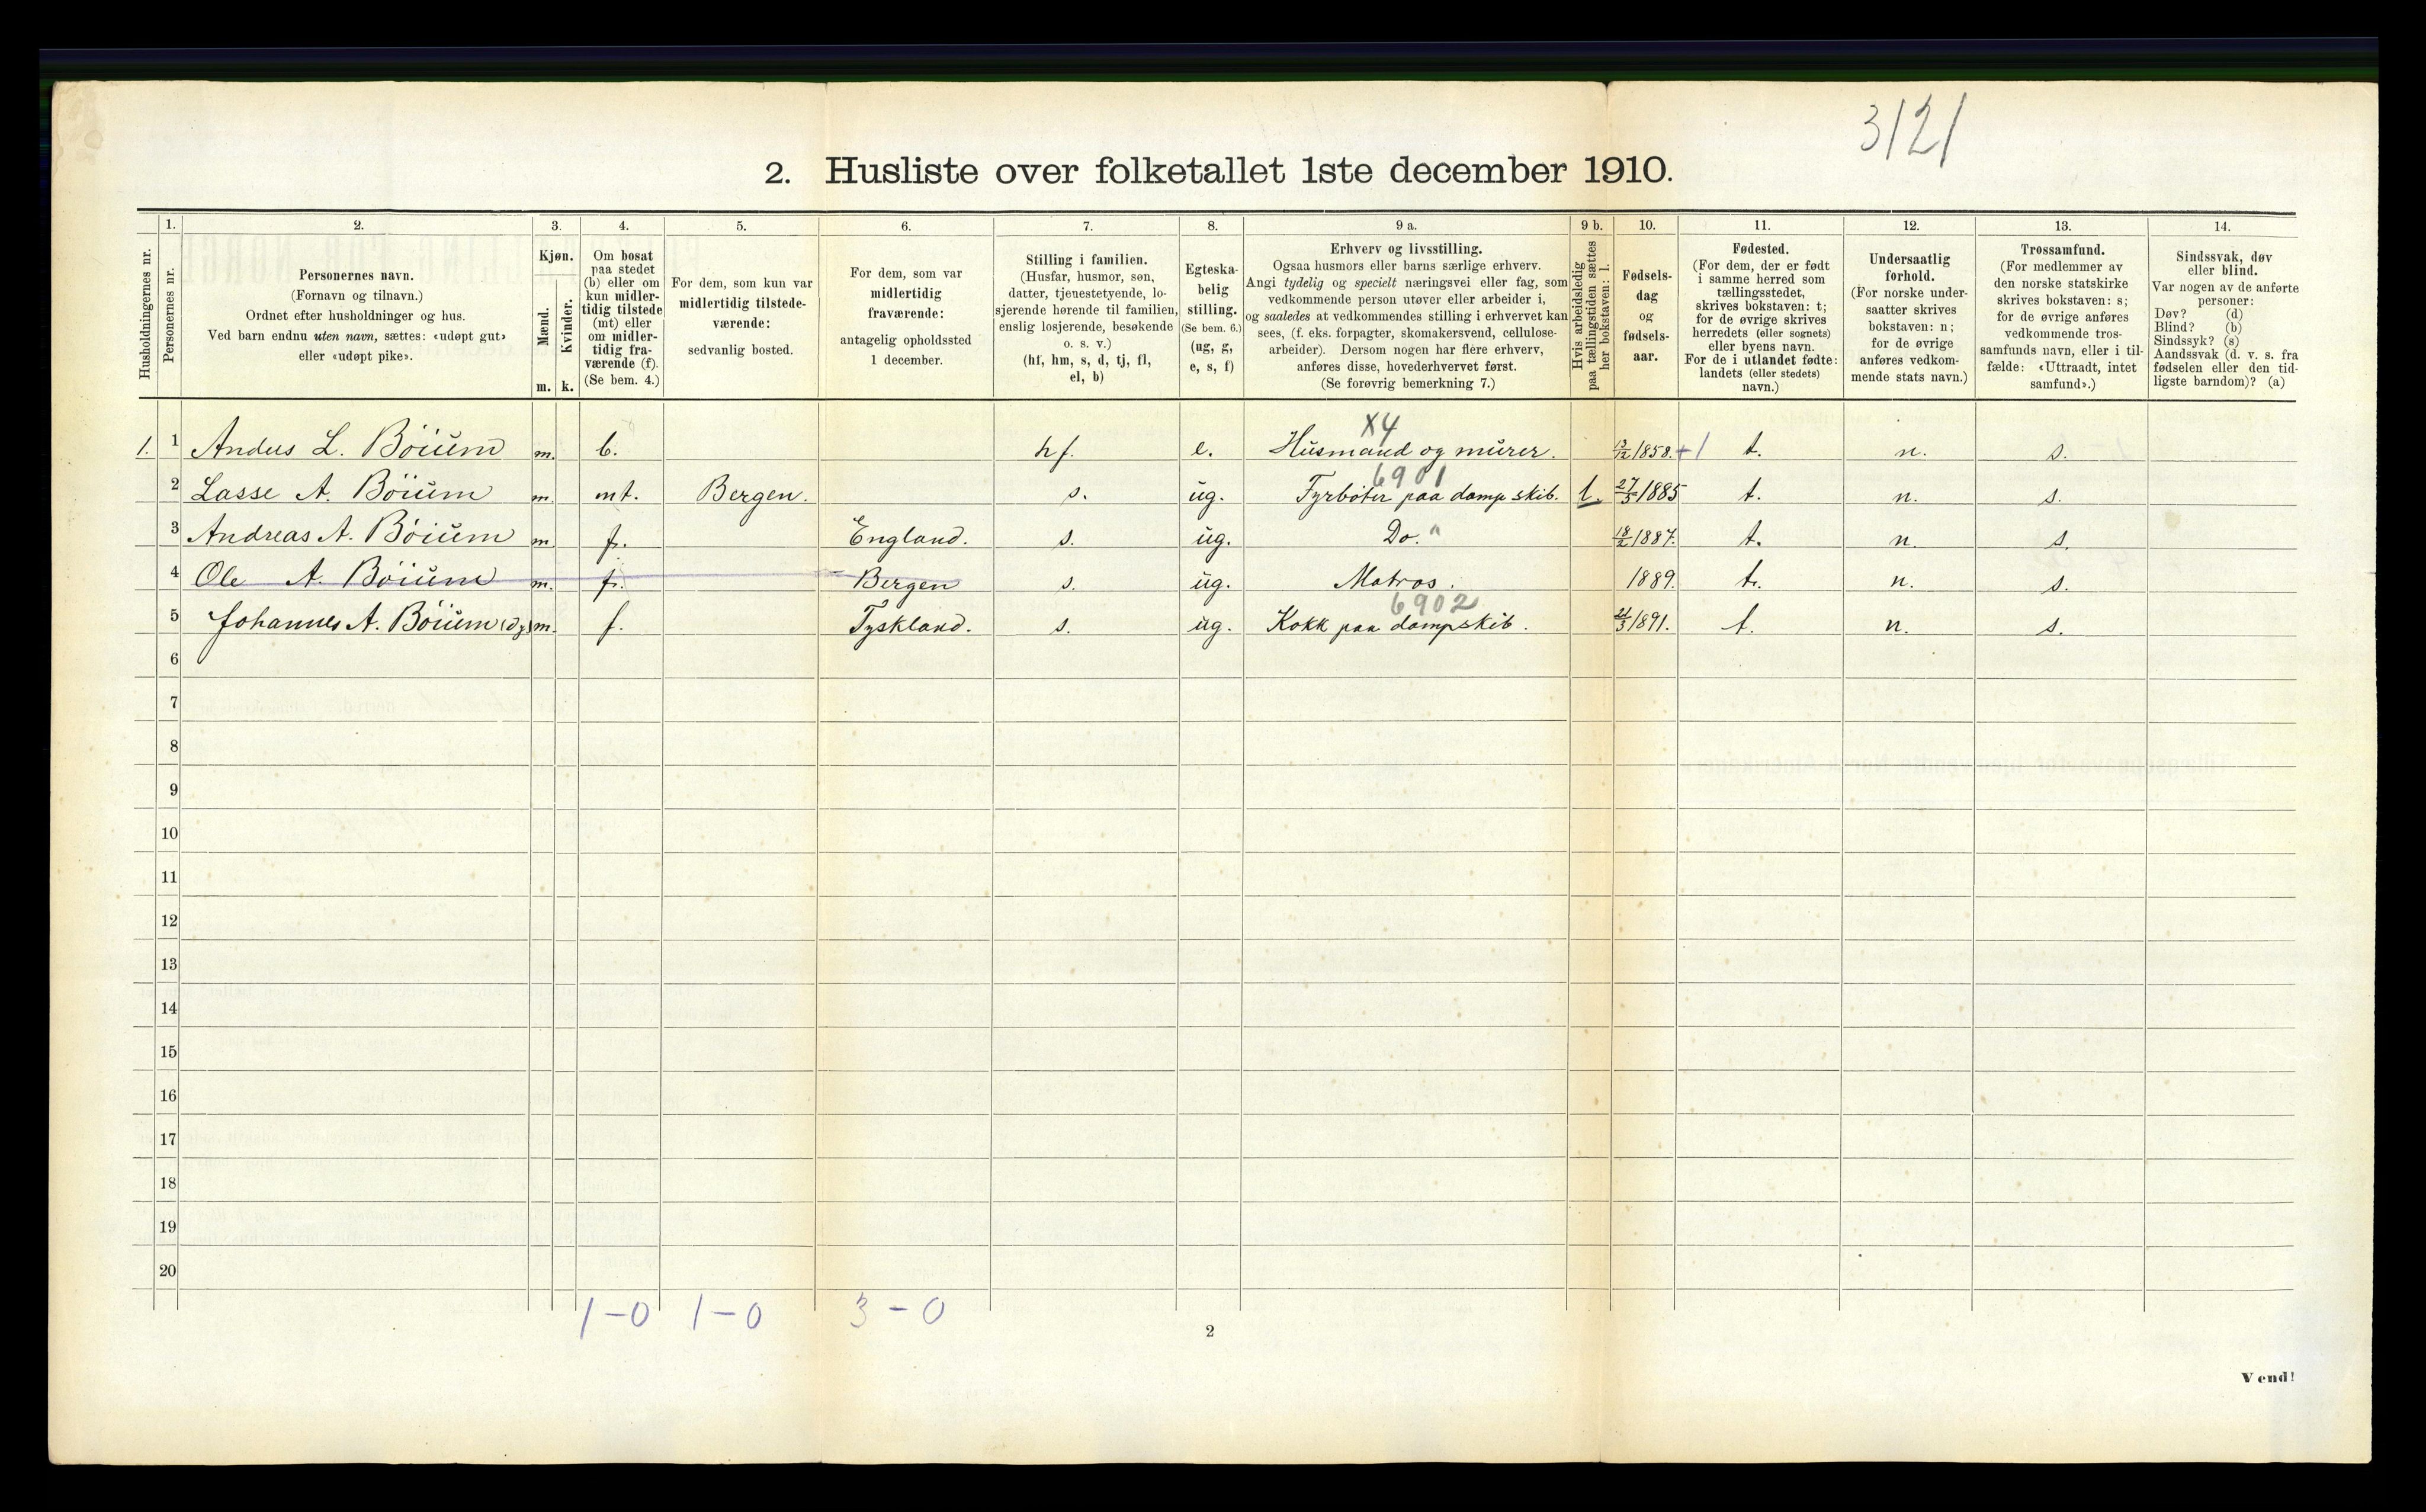 3121
2. Husliste over folketallet 1ste december 1910.
Husholdningernes nr.
1.
Personernes nr.
2.
Personernes navn.
(Fornavn og tilnavn.)
Ordnet efter husholdninger og hus.
Ved barn endnu uten navn, sættes: «udøpt gut»
eller «udøpt pike».
3.
Kjøn.
Mænd.
Kvinder.
m. k.
4.
Om bosat
paa stedet
(b) eller om
kun midler-
tidig tilstede
(mt) eller
om midler-
tidig fra-
værende (f).
(Se bem. 4.)
5.
For dem, som kun var
midlertidig tilstede-
værende:
sedvanlig bosted.
6.
For dem, som var
midlertidig
fraværende:
antagelig opholdssted
1 december.
7.
Stilling i familien.
(Husfar, husmor, søn,
datter, tjenestetyende, lo-
sjerende hørende til familien,
enslig losjerende, besøkende
o. s. v.)
(hf, hm, s, d, tj, fl,
el, b)
8.
Egteska-
belig
stilling.
(Se bem. 6.)
(ug, g,
e, s, f)
9 a.
Erhverv og livsstilling.
Ogsaa husmors eller barns særlige erhverv.
Angi tydelig og specielt næringsvei eller fag, som
vedkommende person utøver eller arbeider i,
og saaledes at vedkommendes stilling i erhvervet kan
sees, (f. eks. forpagter, skomakersvend, cellulose-
arbeider). Dersom nogen har flere erhverv,
anføres disse, hovederhvervet først.
(Se forøvrig bemerkning 7.)
9 b.
Hvis arbeidsledig
paa tællingstiden sættes
her bokstaven: l.
10.
Fødsels-
dag
og
fødsels-
aar.
11.
Fødested.
(For dem, der er født
i samme herred som
tællingsstedet,
skrives bokstaven: t;
for de øvrige skrives
herredets (eller sognets)
eller byens navn.
For de i utlandet fødte:
landets (eller stedets)
navn.)
12.
Undersaatlig
forhold.
(For norske under-
saatter skrives
bokstaven: n;
for de øvrige
anføres vedkom-
mende stats navn.)
13.
Trossamfund.
(For medlemmer av
den norske statskirke
skrives bokstaven: s;
for de øvrige anføres
vedkommende tros-
samfunds navn, eller i til-
fælde: «Uttraadt, intet
samfund».)
14.
Sindssvak, døv
eller blind.
Var nogen av de anførte
personer:
Døv? (d)
Blind? (b)
Sindssyk? (s)
Aandssvak (d. v. s. fra
fødselen eller den tid-
ligste barndom)? (a)
X4
1. 1 Andus L. Böium m. b. hf. e. Husmand og murer. 13/12 1858. +1 t. n. s.
6901
2 Lasse A. Böium m. mt. Bergen. s. ug. Fyrböter paa dampskib. l. 27/5 1885 t. n. s.
3 Andreas A. Böium m. f. England. s. ug. Do. " 18/2 1887. t. n. s.
4 Ole A. Böium m. f. Bergen s. ug. Matros. 1889. t. n. s.
6902
5 Johannes A. Böium m. f. Tyskland. s. ug. Kokk paa dampskib. 1891. t. n. s.
6
7
8
9
10
11
12
13
14
15
16
17
18
19
20
1-0 1-0 3-0
2
Vend!